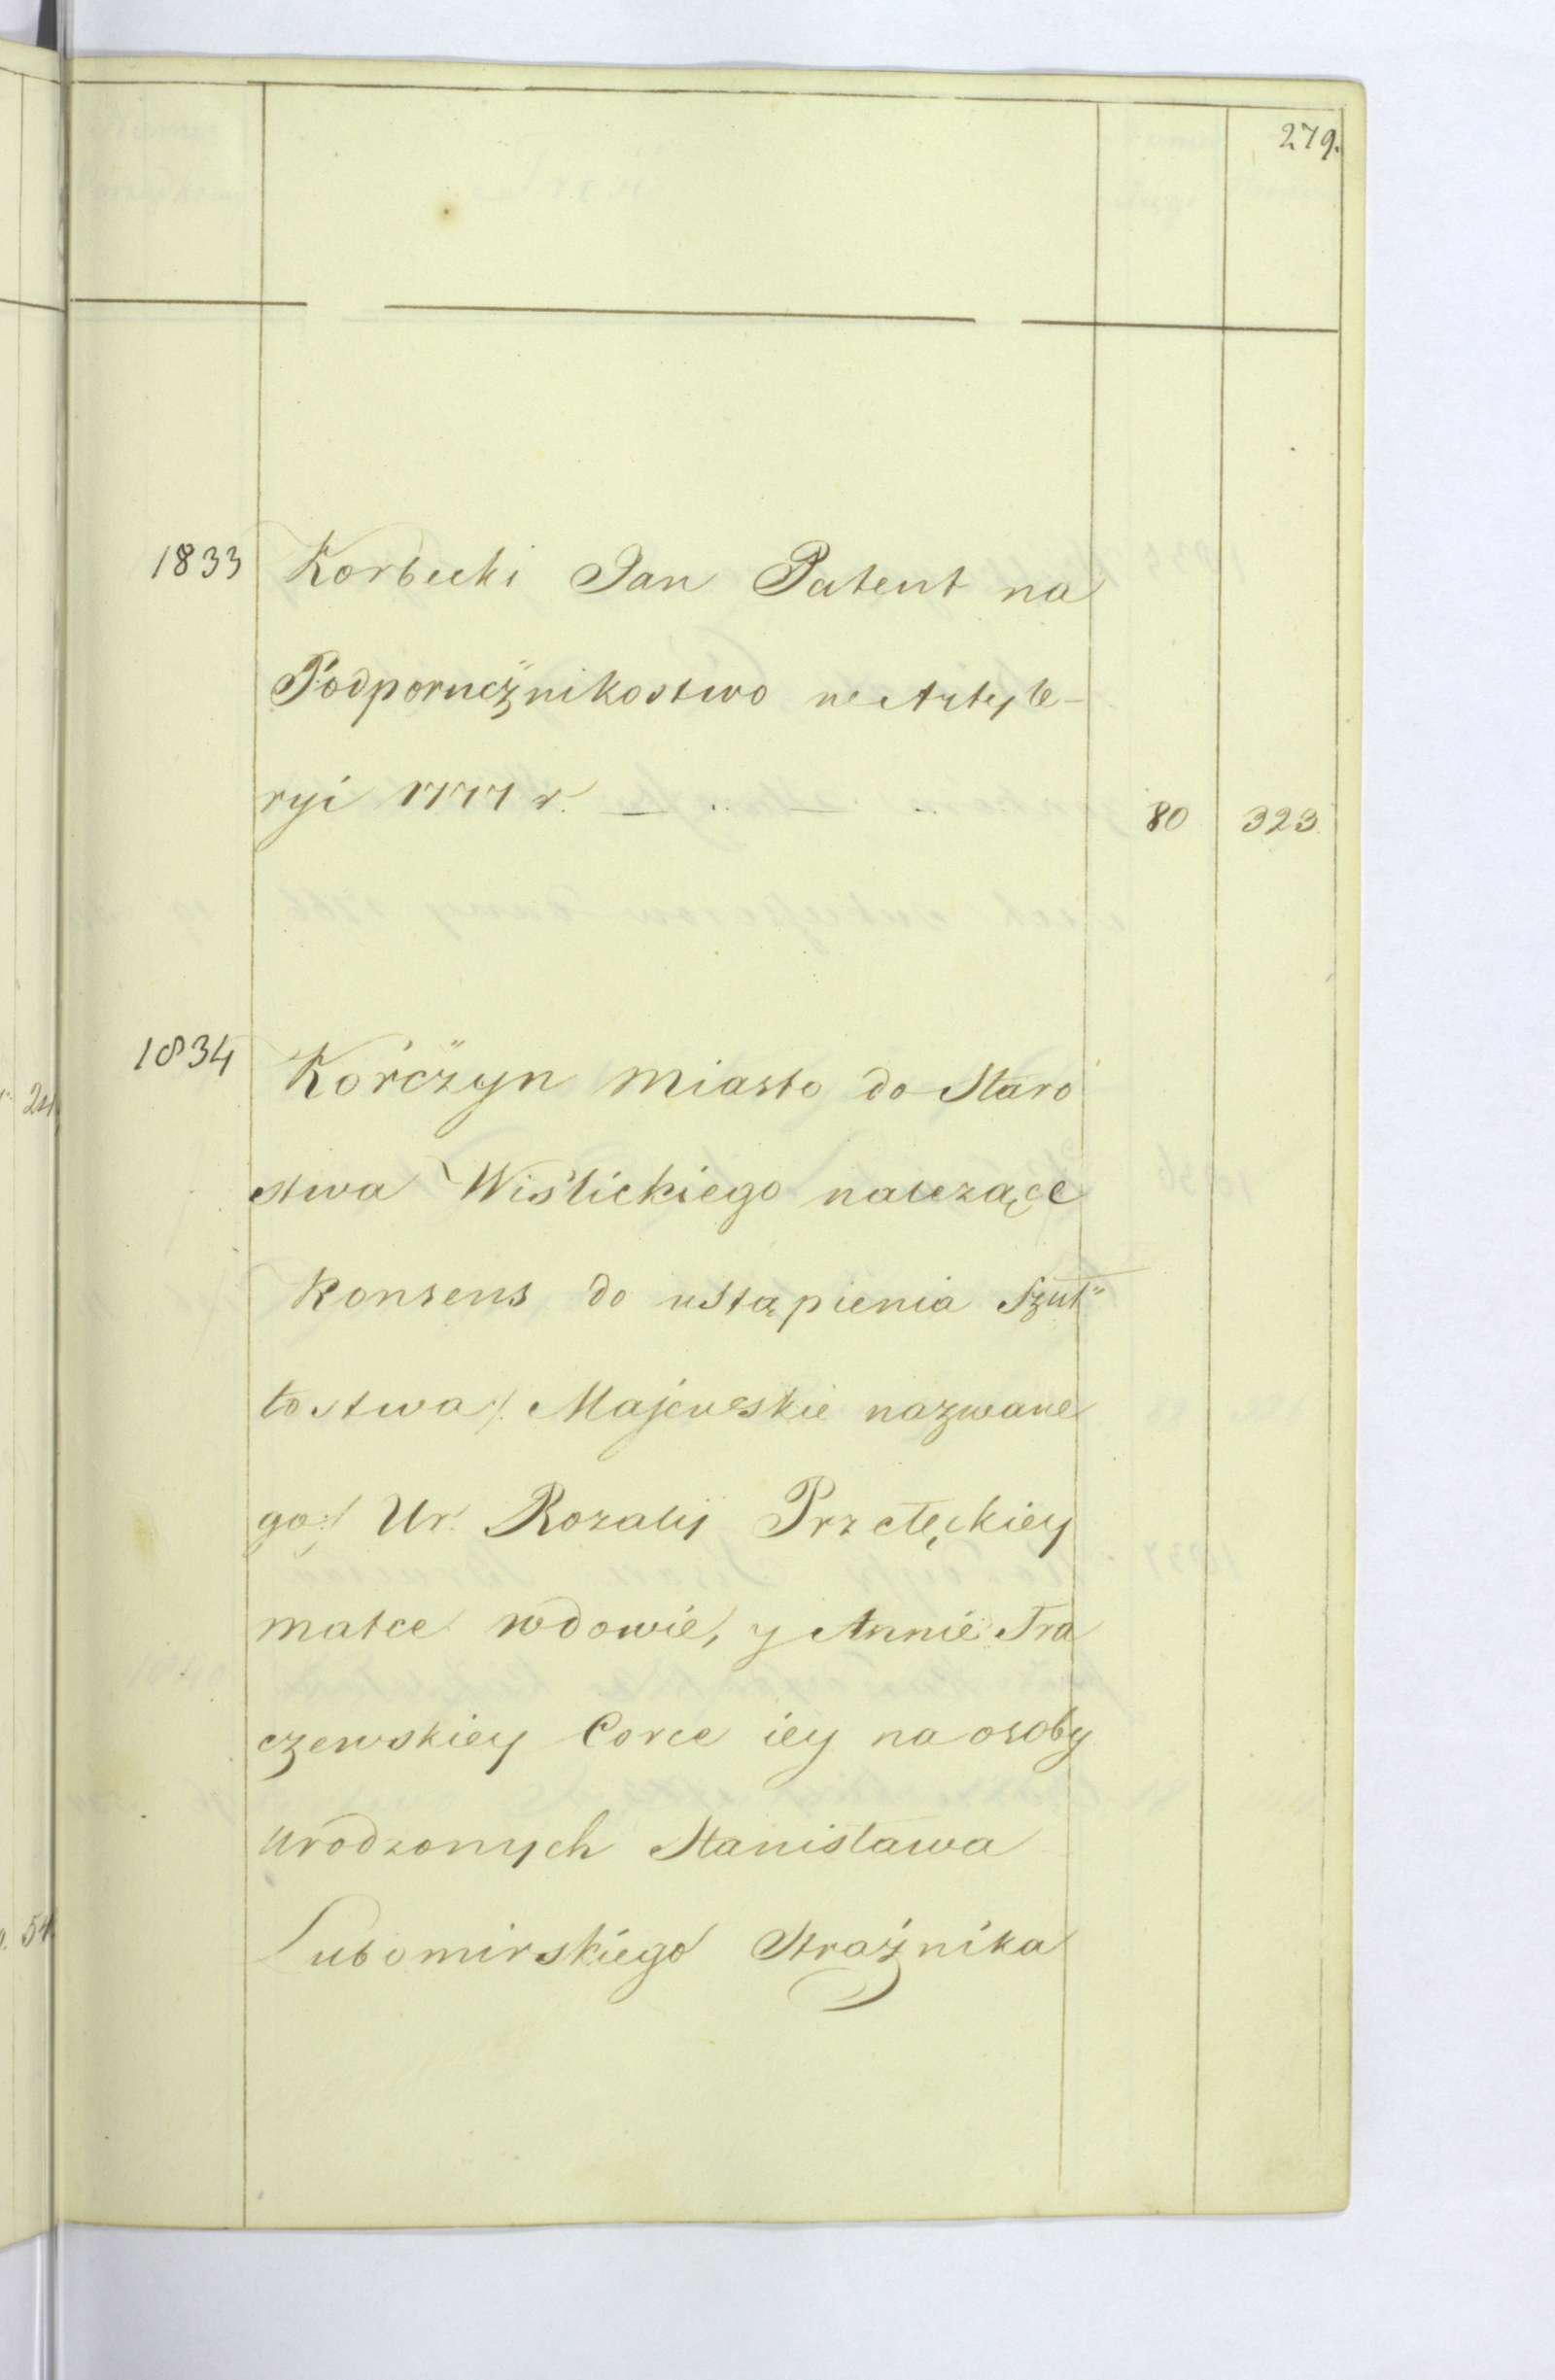 279.
1833 Korbecki Jan Patent na
Podporucznikostwo w Artyle-
ryi 1777 r. — .. — .. 80 323.
1834 Korczyn miasto do Staro
stwa Wiślickiego należące
Konsens do ustąpienia Szuł"
tostwa /: Majewskie nazwane
go :/ Ur. Rozalij Przełęckiey
matce wdowie, y Annie Tra
czewskiey Corce iey na osoby
Urodzonych Stanisława
Lubomirskiego Strażnika